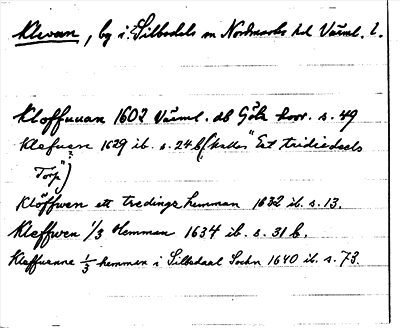 Klevan, by i. Silbodals sn Nordmarks hd Värml. l.
Kloffuuan 1602 Värml. ab Götz koor. s. 49
Klefuen 1629 ib. s. 24 b (kallas "Ett tridiedeels
Torp")
Klöffwen ett tredings hemman 1632 ib. s. 13.
Kleffwen 1/3 Hemman 1634 ib. s. 31 b.
Kleffuanne 1/3 hemman i Silbodaal Sochn 1640 ib. s. 73.